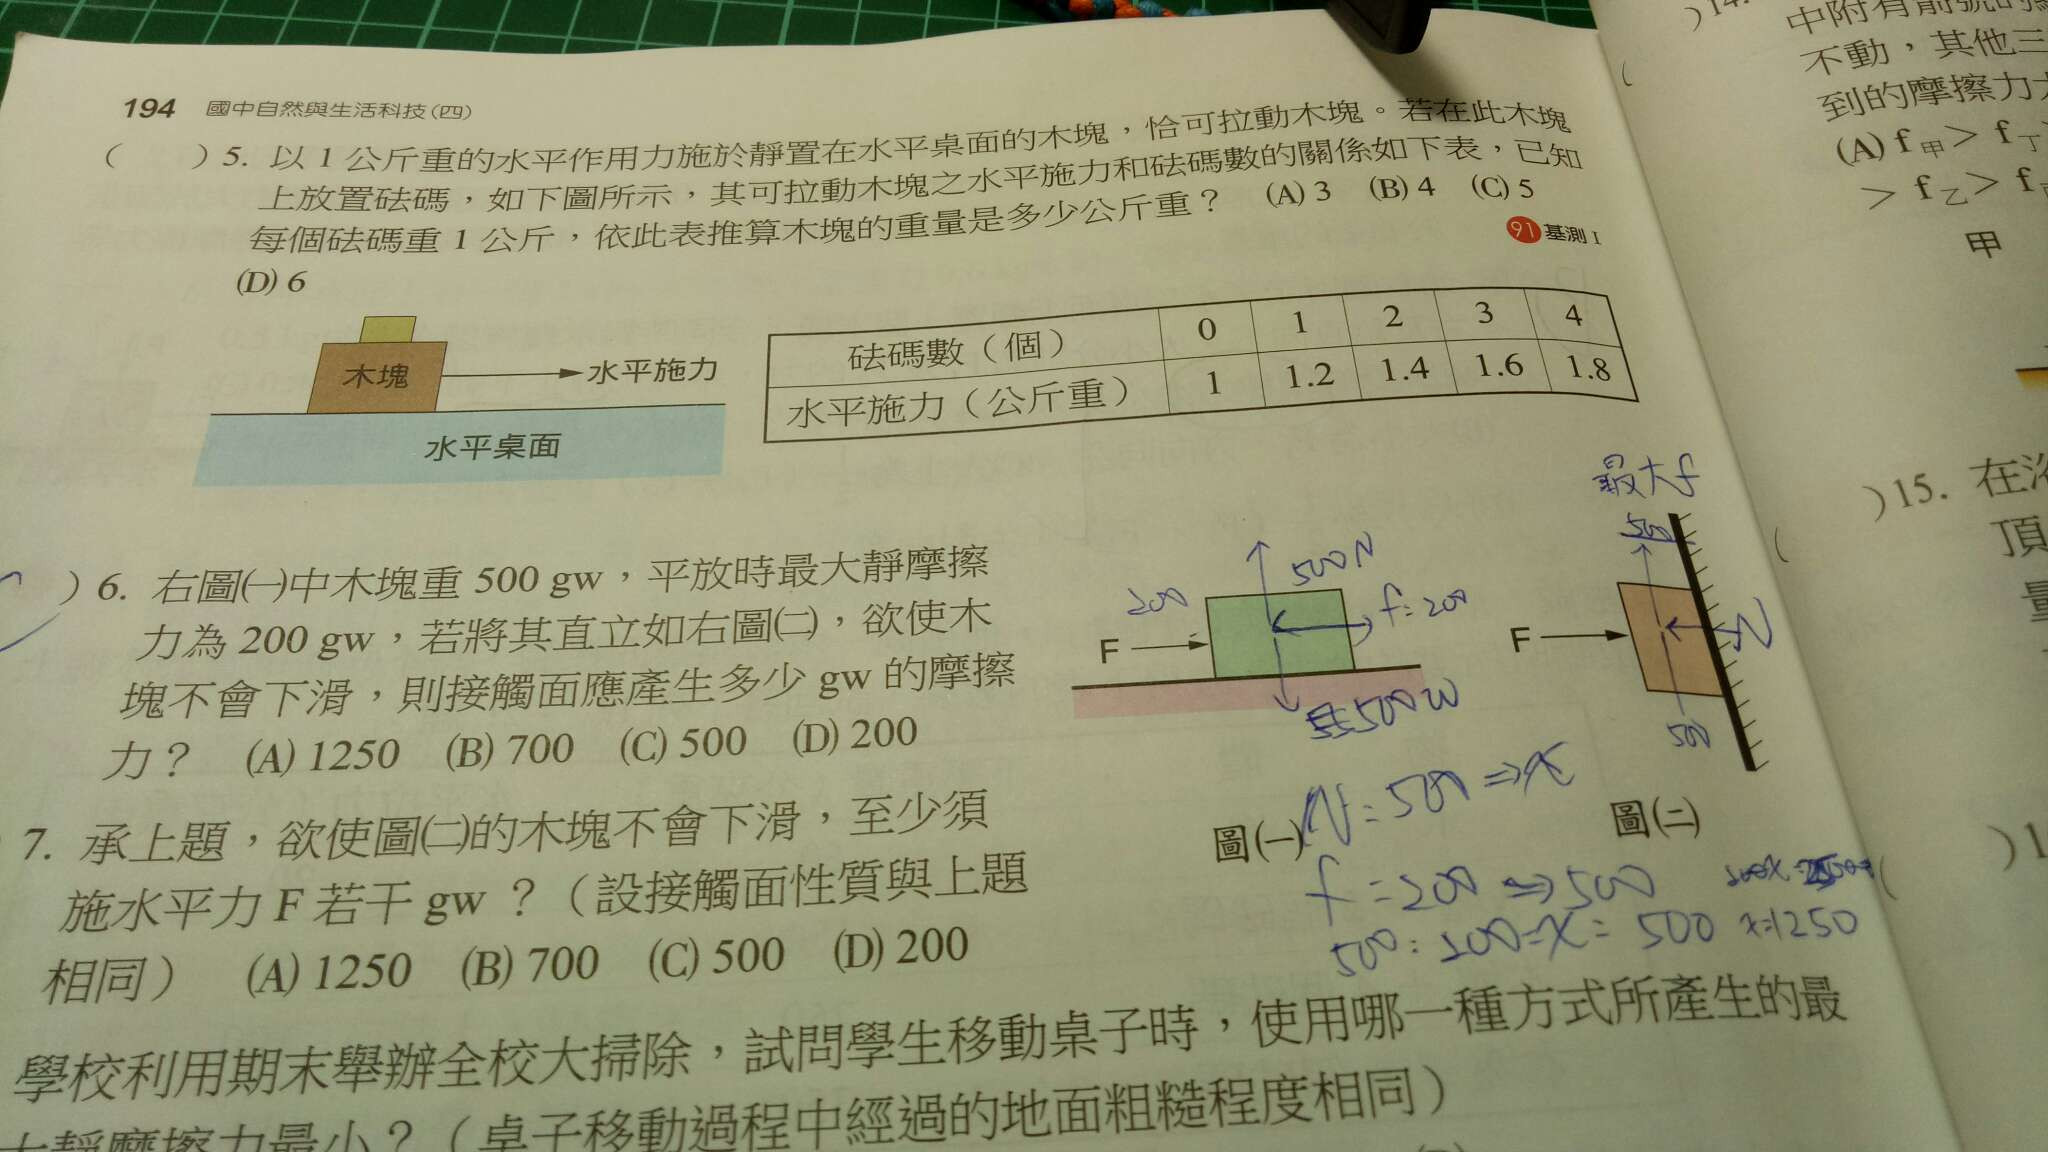 194 國中自然與生活科技(四)
( )5. 以 1 公斤重的水平作用力施於靜置在水平桌面的木塊，恰可拉動木塊。若在此木塊
上放置砝碼，如下圖所示，其可拉動木塊之水平施力和砝碼數的關係如下表，已知
每個砝碼重 1 公斤，依此表推算木塊的重量是多少公斤重？ (A) 3 (B) 4 (C) 5
(D) 6
91 基測 I
木塊
水平施力
水平桌面
砝碼數（個） 0 1 2 3 4
水平施力（公斤重） 1 1.2 1.4 1.6 1.8
)6. 右圖㈠中木塊重 500 gw，平放時最大靜摩擦
力為 200 gw，若將其直立如右圖㈡，欲使木
塊不會下滑，則接觸面應產生多少 gw 的摩擦
力？ (A) 1250 (B) 700 (C) 500 (D) 200
200
500 N
f=200
F
500 W
圖㈠
最大f
500
F
N
500
圖㈡
N=500 ⇒x
f=200 ⇒500
500:200=x=500
x=1250
7. 承上題，欲使圖㈡的木塊不會下滑，至少須
施水平力 F 若干 gw ？（設接觸面性質與上題
相同） (A) 1250 (B) 700 (C) 500 (D) 200
學校利用期末舉辦全校大掃除，試問學生移動桌子時，使用哪一種方式所產生的最
大靜摩擦力最小？（桌子移動過程中經過的地面粗糙程度相同）
)14.
中附有箭號的
不動，其他三
到的摩擦力
(A) f甲> f丁
> f乙> f
甲
)15. 在
頂
量
)1